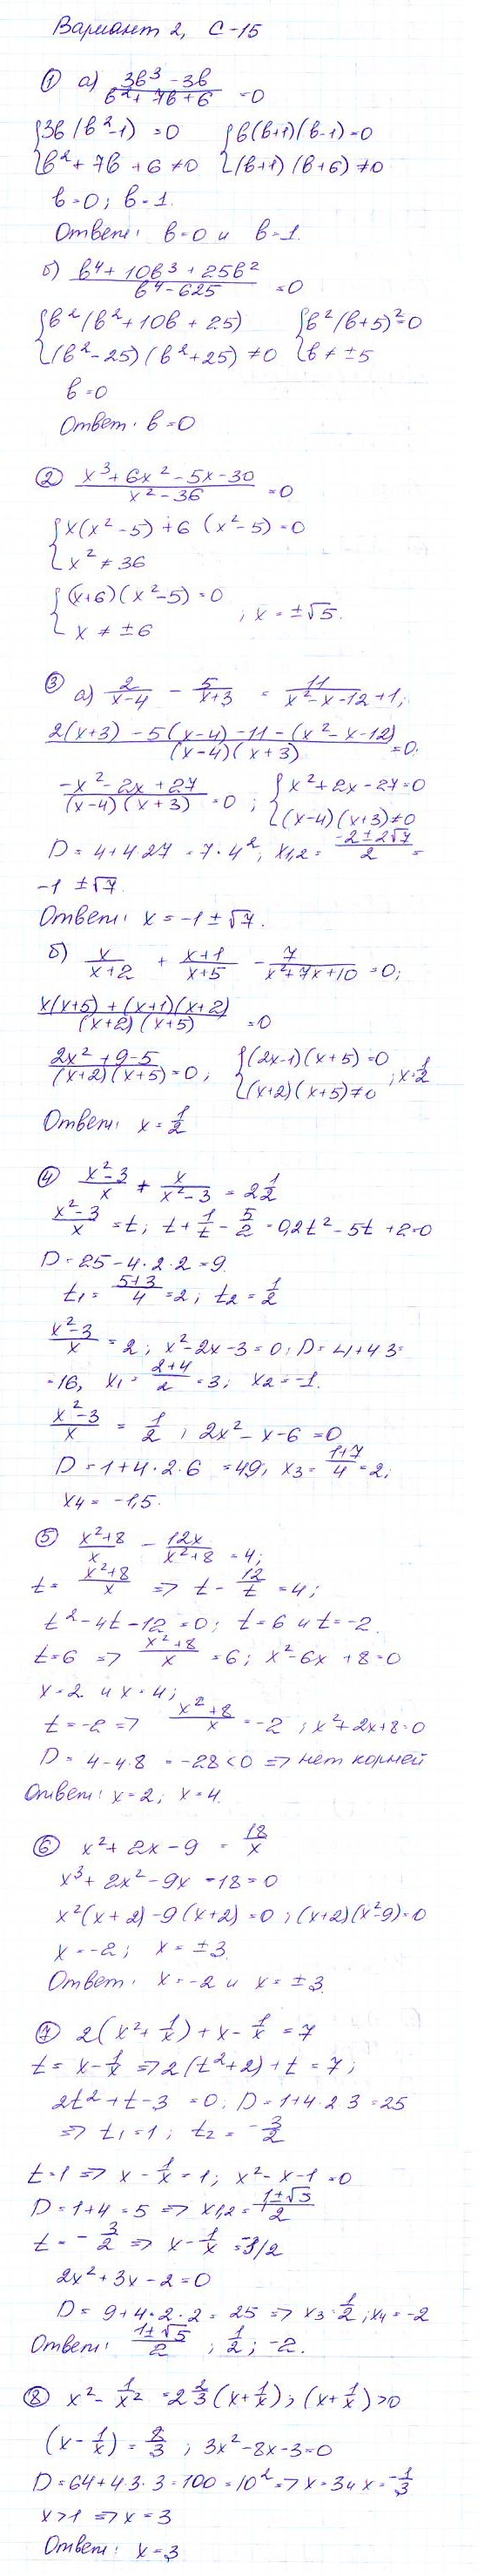 Вариант 2, С-15
① а) (3b³ - 3b)/(b² + 7b + 6) = 0
{3b(b²-1) = 0 {b(b+1)(b-1) = 0
{b² + 7b + 6 ≠ 0 {(b+1)(b+6) ≠ 0
b = 0; b = 1.
Ответ: b = 0 и b = 1.
б) (b⁴ + 10b³ + 25b²)/(b⁴ - 625) = 0
{b²(b² + 10b + 25) {b²(b+5)² = 0
{(b² - 25)(b² + 25) ≠ 0 {b ≠ ±5
b = 0
Ответ: b = 0
② (x³ + 6x² - 5x - 30)/(x² - 36) = 0
{x(x² - 5) + 6(x² - 5) = 0
{x² ≠ 36
{(x+6)(x² - 5) = 0
{x ≠ ±6 ; x = ±√5.
③ а) 2/(x-4) - 5/(x+3) = 11/(x² - x - 12) + 1;
(2(x+3) - 5(x-4) - 11 - (x² - x - 12))/((x-4)(x+3)) = 0;
(-x² - 2x + 27)/((x-4)(x+3)) = 0 ; {x² + 2x - 27 = 0
{(x-4)(x+3) ≠ 0
D = 4 + 4·27 = 7·4²; x1,2 = (-2 ± 2√7)/2 =
-1 ± √7.
Ответ: x = -1 ± √7.
б) x/(x+2) + (x+1)/(x+5) - 7/(x² + 7x + 10) = 0;
(x(x+5) + (x+1)(x+2))/((x+2)(x+5)) = 0
(2x² + 9 - 5)/((x+2)(x+5)) = 0; {(2x-1)(x+5) = 0
{(x+2)(x+5) ≠ 0 ; x = 1/2
Ответ: x = 1/2
④ (x² - 3)/x + x/(x² - 3) = 2 1/2
(x² - 3)/x = t; t + 1/t - 5/2 = 0, 2t² - 5t + 2 = 0
D = 25 - 4·2·2 = 9.
t₁ = (5+3)/4 = 2; t₂ = 1/2
(x² - 3)/x = 2; x² - 2x - 3 = 0; D = 4 + 4·3 =
= 16, x₁ = (2+4)/2 = 3; x₂ = -1.
(x² - 3)/x = 1/2 ; 2x² - x - 6 = 0
D = 1 + 4·2·6 = 49; x₃ = (1+7)/4 = 2;
x₄ = -1,5.
⑤ (x² + 8)/x - 12x/(x² + 8) = 4;
t = (x² + 8)/x ⇒ t - 12/t = 4;
t² - 4t - 12 = 0; t = 6 и t = -2.
t = 6 ⇒ (x² + 8)/x = 6; x² - 6x + 8 = 0
x = 2 и x = 4;
t = -2 ⇒ (x² + 8)/x = -2 ; x² + 2x + 8 = 0
D = 4 - 4·8 = -28 < 0 ⇒ нет корней
Ответ: x = 2; x = 4.
⑥ x² + 2x - 9 = 18/x
x³ + 2x² - 9x - 18 = 0
x²(x + 2) - 9(x + 2) = 0 ; (x+2)(x² - 9) = 0
x = -2; x = ±3.
Ответ: x = -2 и x = ±3.
⑦ 2(x² + 1/x) + x - 1/x = 7
t = x - 1/x ⇒ 2(t² + 2) + t = 7;
2t² + t - 3 = 0; D = 1 + 4·2·3 = 25
⇒ t₁ = 1; t₂ = -3/2
t = 1 ⇒ x - 1/x = 1; x² - x - 1 = 0
D = 1 + 4 = 5 ⇒ x1,2 = (1 ± √5)/2
t = -3/2 ⇒ x - 1/x = -3/2
2x² + 3x - 2 = 0
D = 9 + 4·2·2 = 25 ⇒ x₃ = 1/2; x₄ = -2
Ответ: (1 ± √5)/2 ; 1/2 ; -2.
⑧ x² - 1/x² = 2 2/3 (x + 1/x); (x + 1/x) > 0
(x - 1/x) = 8/3 ; 3x² - 8x - 3 = 0
D = 64 + 4·3·3 = 100 = 10² ⇒ x = 3 и x = -1/3
x > 1 ⇒ x = 3
Ответ: x = 3